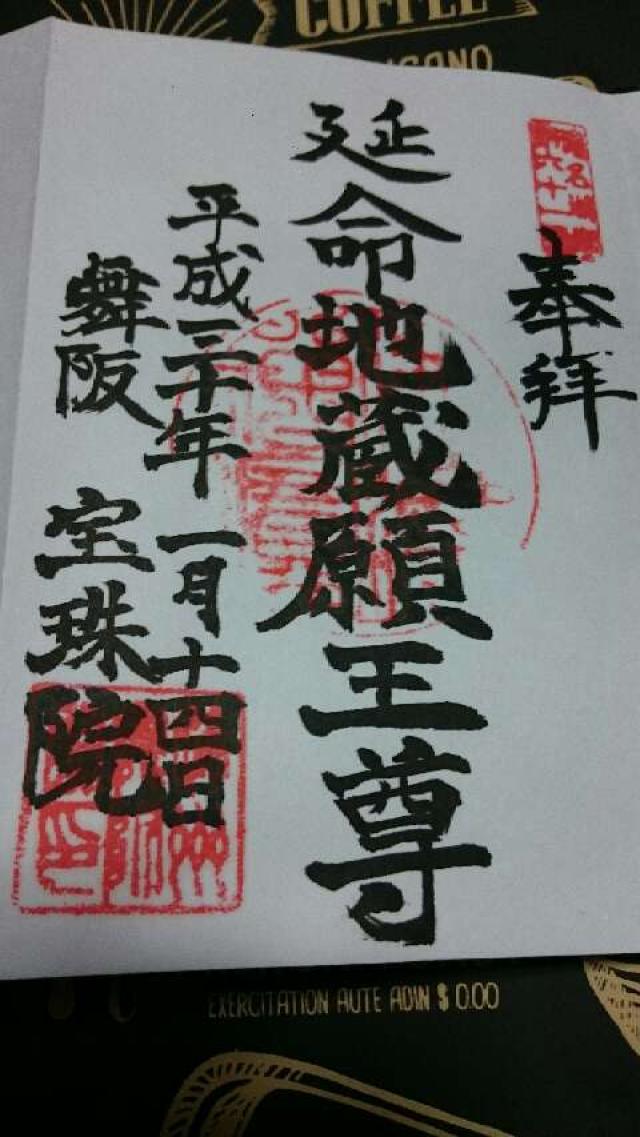 COFFEE
奉拝
延命地蔵願王尊
平成三十年 一月十四日
舞阪 宝珠院
EXERCITATION AUTE ADIN $ 0.00